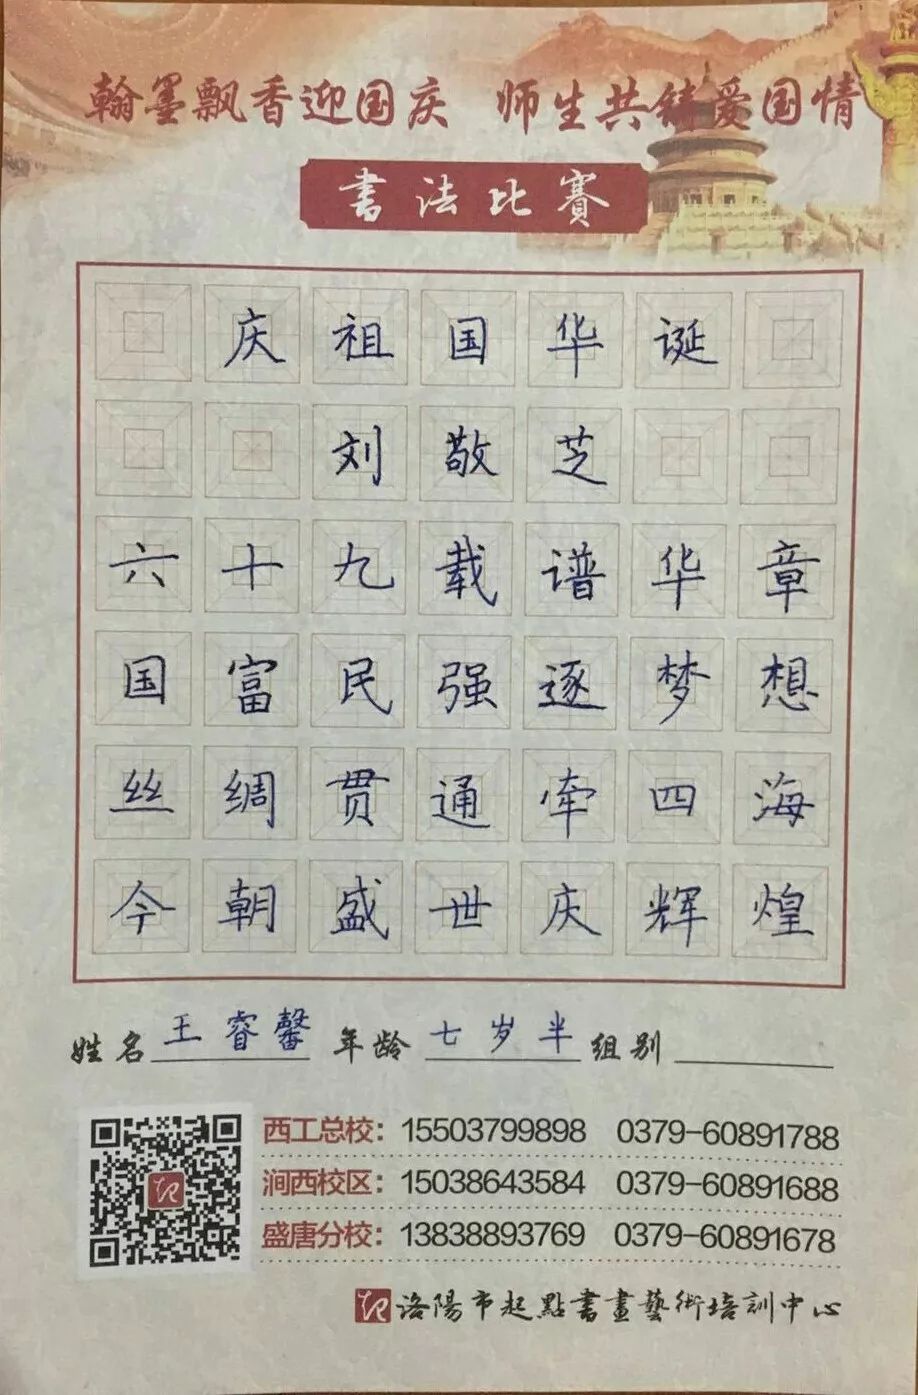 翰墨飘香迎国庆 师生共铸爱国情
书法比赛
庆祖国华诞
刘敬芝
六十九载谱华章
国富民强逐梦想
丝绸贯通牵四海
今朝盛世庆辉煌
姓名 王睿馨 年龄 七岁半 组别
西工总校：15503799898 0379-60891788
涧西校区：15038643584 0379-60891688
盛唐分校：13838893769 0379-60891678
洛陽市起點書畫藝術培訓中心